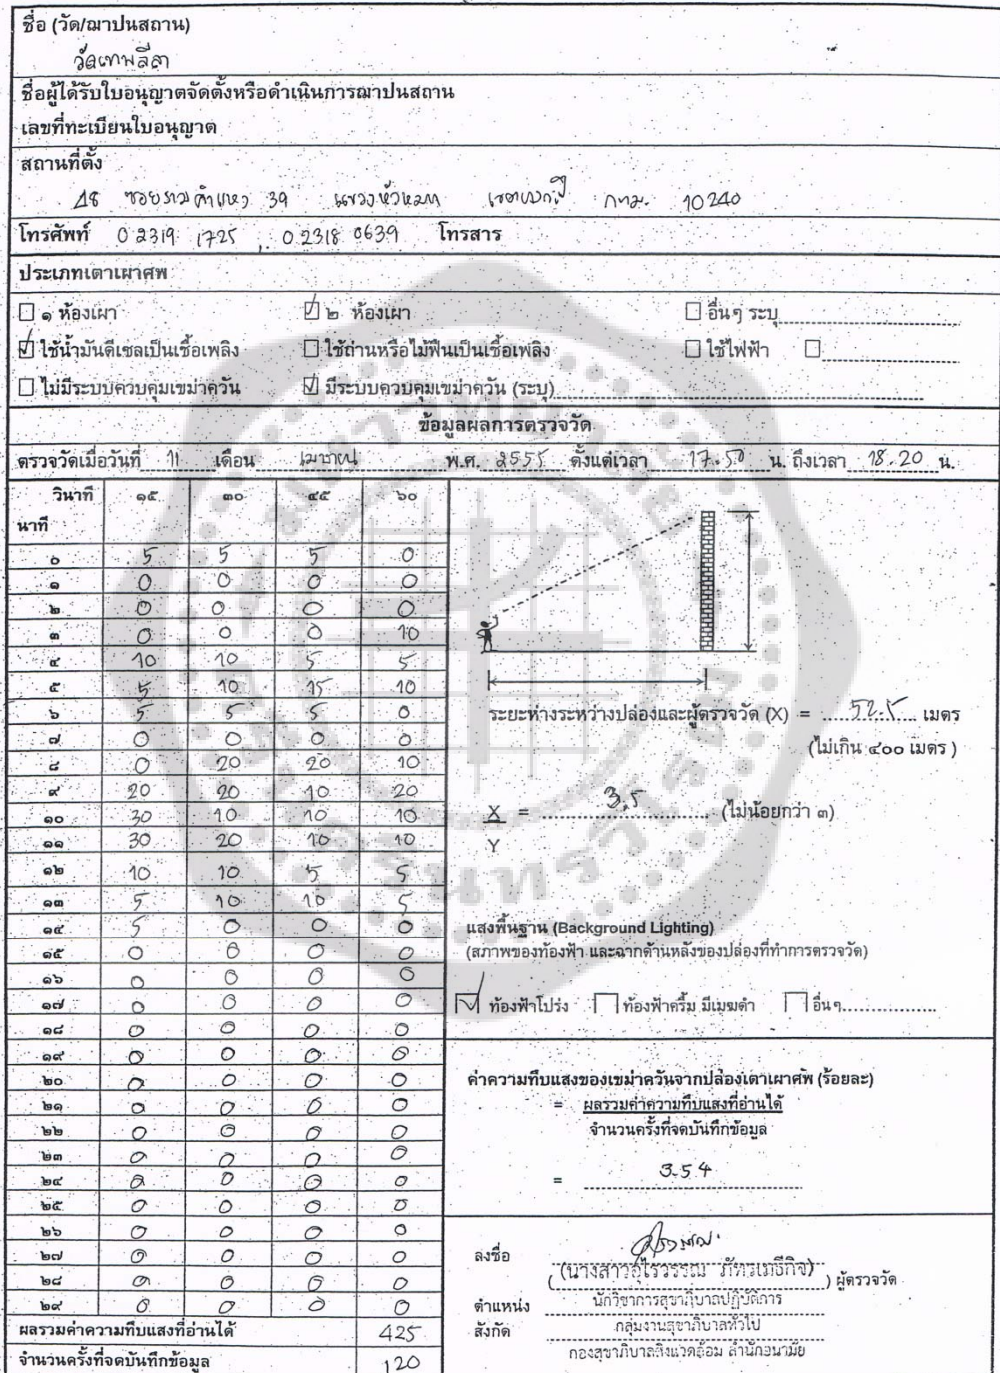 ชื่อ (วัด/ฌาปนสถาน)
วัดเทพลีลา
ชื่อผู้ได้รับใบอนุญาตจัดตั้งหรือดำเนินการฌาปนสถาน
เลขที่ทะเบียนใบอนุญาต
สถานที่ตั้ง
18 ซอยรามคำแหง 39 แขวงหัวหมาก เขตบางกะปิ กทม. 10240
โทรศัพท์ 0 2319 1725 , 0 2318 0639 โทรสาร
ประเภทเตาเผาศพ
☐ ๑ ห้องเผา ☑ ๒ ห้องเผา ☐ อื่นๆ ระบุ
☑ ใช้น้ำมันดีเซลเป็นเชื้อเพลิง ☐ ใช้ถ่านหรือไม้ฟืนเป็นเชื้อเพลิง ☐ ใช้ไฟฟ้า ☐
☐ ไม่มีระบบควบคุมเขม่าควัน ☑ มีระบบควบคุมเขม่าควัน (ระบุ)
ข้อมูลผลการตรวจวัด
ตรวจวัดเมื่อวันที่ 11 เดือน เมษายน พ.ศ. 2555 ตั้งแต่เวลา 17.50 น. ถึงเวลา 18.20 น.
วินาที ๑๕ ๓๐ ๔๕ ๖๐
นาที
๐ 5 5 5 0
๑ 0 0 0 0
๒ 0 0 0 0
๓ 0 0 0 10
๔ 10 10 5 5
๕ 5 10 15 10
๖ 5 5 5 0
๗ 0 0 0 0
๘ 0 20 20 10
๙ 20 20 10 20
๑๐ 30 10 10 10
๑๑ 30 20 10 10
๑๒ 10 10 5 5
๑๓ 5 10 10 5
๑๔ 5 0 0 0
๑๕ 0 0 0 0
๑๖ 0 0 0 0
๑๗ 0 0 0 0
๑๘ 0 0 0 0
๑๙ 0 0 0 0
๒๐ 0 0 0 0
๒๑ 0 0 0 0
๒๒ 0 0 0 0
๒๓ 0 0 0 0
๒๔ 0 0 0 0
๒๕ 0 0 0 0
๒๖ 0 0 0 0
๒๗ 0 0 0 0
๒๘ 0 0 0 0
๒๙ 0 0 0 0
ผลรวมค่าความทึบแสงที่อ่านได้ 425
จำนวนครั้งที่จดบันทึกข้อมูล 120
ระยะห่างระหว่างปล่องและผู้ตรวจวัด (X) = 52.5 เมตร
(ไม่เกิน ๔๐๐ เมตร )
X = 3.5 (ไม่น้อยกว่า ๓)
Y
แสงพื้นฐาน (Background Lighting)
(สภาพของท้องฟ้า และฉากด้านหลังของปล่องที่ทำการตรวจวัด)
☑ ท้องฟ้าโปร่ง ☐ ท้องฟ้าครึ้ม มีเมฆดำ ☐ อื่นๆ
ค่าความทึบแสงของเขม่าควันจากปล่องเตาเผาศพ (ร้อยละ)
= ผลรวมค่าความทึบแสงที่อ่านได้
จำนวนครั้งที่จดบันทึกข้อมูล
= 3.54
ลงชื่อ
(นางสาวอุไรวรรณ ภัทรเมธีกิจ) ผู้ตรวจวัด
ตำแหน่ง นักวิชาการสุขาภิบาลปฏิบัติการ
สังกัด กลุ่มงานสุขาภิบาลทั่วไป
กองสุขาภิบาลสิ่งแวดล้อม สำนักอนามัย